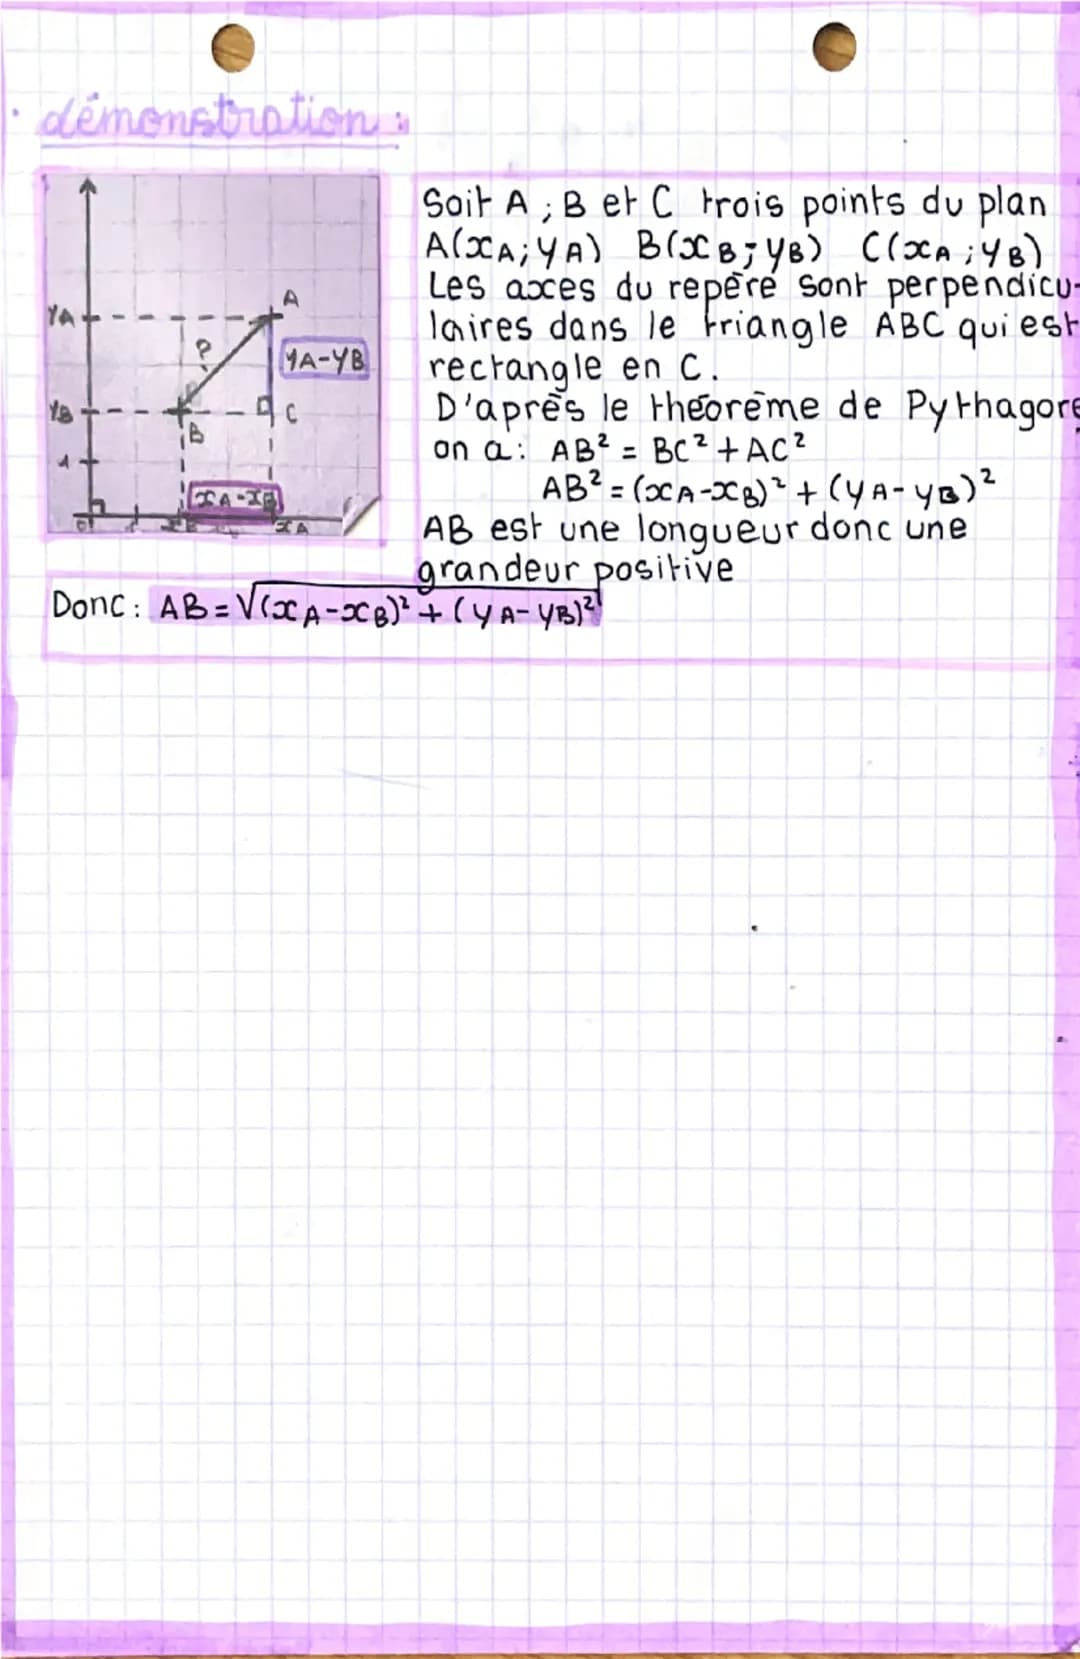 • démonstration :
Soit A ; B et C trois points du plan
A(xA ; yA) B(xB ; yB) C(xA ; yB)
Les axes du repère sont perpendicu-
laires dans le triangle ABC qui est
rectangle en C.
D'après le théorème de Pythagore
on a : AB² = BC² + AC²
AB² = (xA-xB)² + (yA-yB)²
AB est une longueur donc une
grandeur positive
Donc : AB = √(xA-xB)² + (yA-yB)²
A
yA
?
yA-yB
yB
C
B
1
xA-xB
0
1
xB
xA